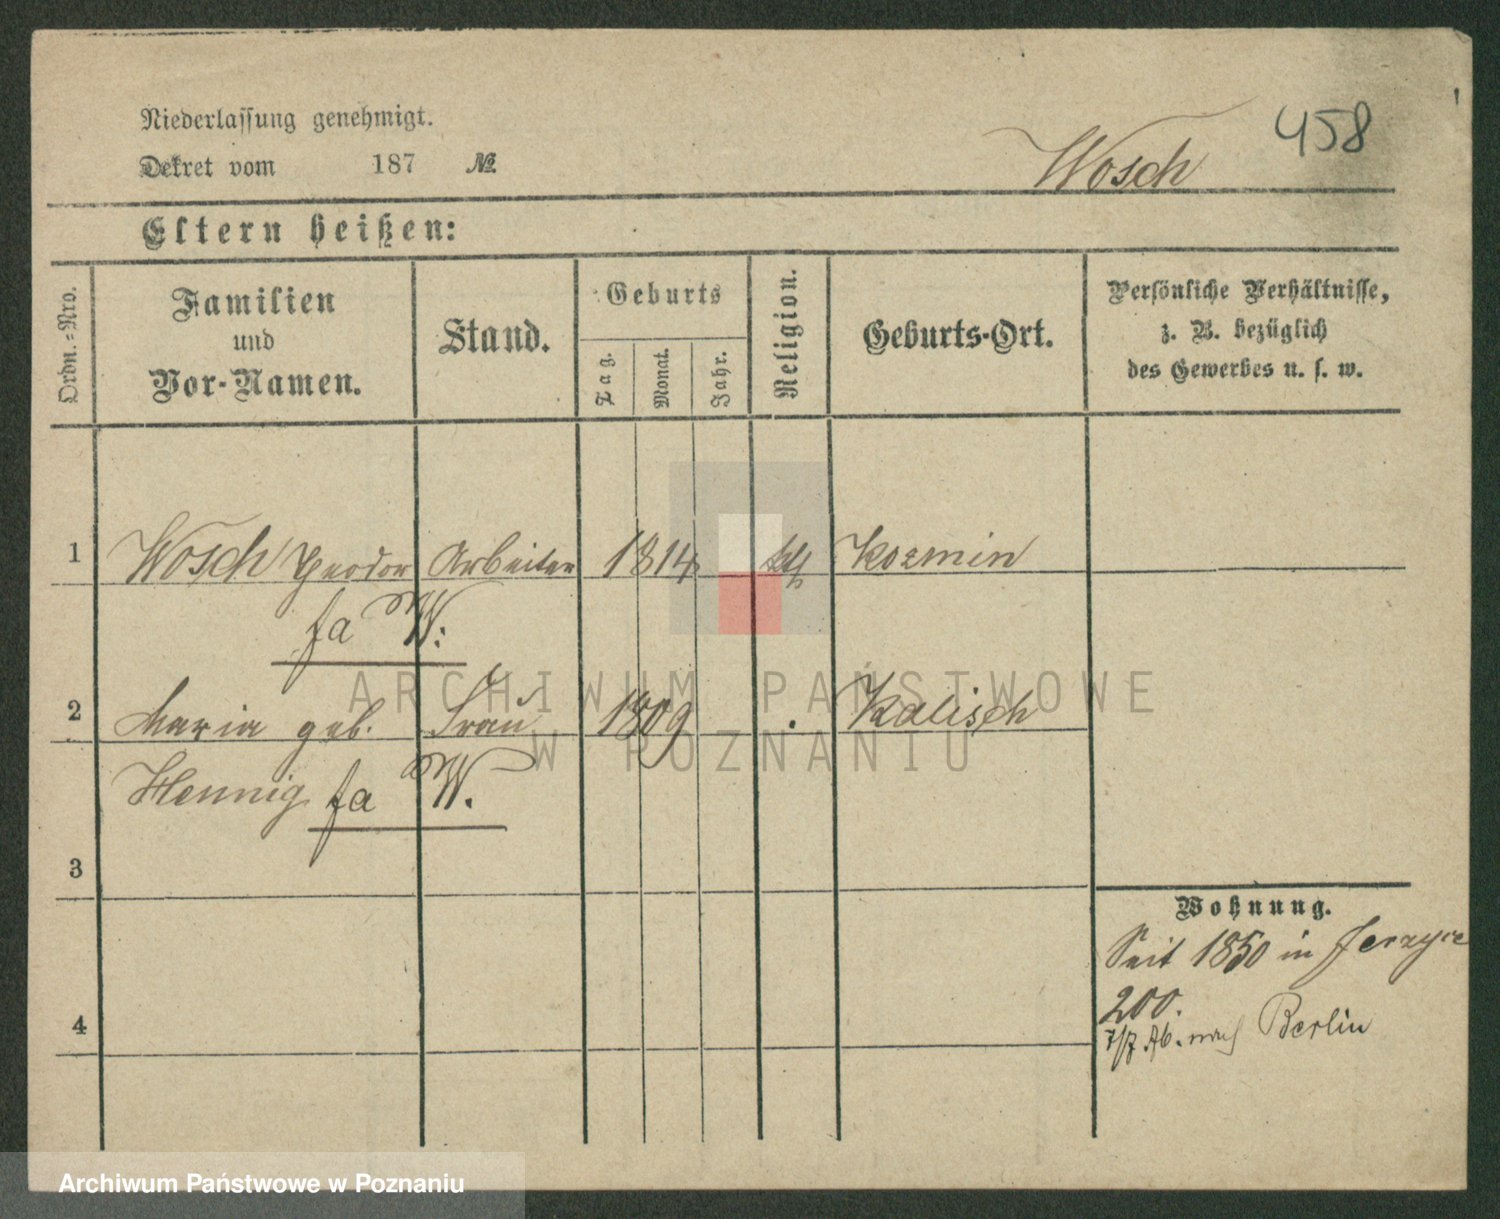 458
Niederlassung genehmigt.
Dekret vom 187 № Wosch
Eltern heißen:
Ordn.-Nro.
Familien und Vor-Namen.
Stand.
Geburts
Tag.
Monat.
Jahr.
Religion.
Geburts-Ort.
Persönliche Verhältnisse,
z. B. bezüglich
des Gewerbes u. s. w.
1 Wosch Theodor Arbeiter 1814 kth Kozmin
fa W.
2 Maria geb. Frau 1809 Kalisch
Hennig fa W.
3
Wohnung.
Seit 1850 in Jerzyce
200.
4
Ab. nach Berlin
ARCHIWUM PAŃSTWOWE
W POZNANIU
Archiwum Państwowe w Poznaniu